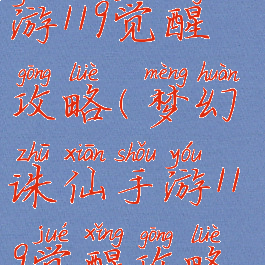 游119觉醒
gōng lüè mèng huàn
攻略(梦幻
zhū xiān shǒu yóu
诛仙手游11
jué xǐng gōng lüè
9觉醒攻略